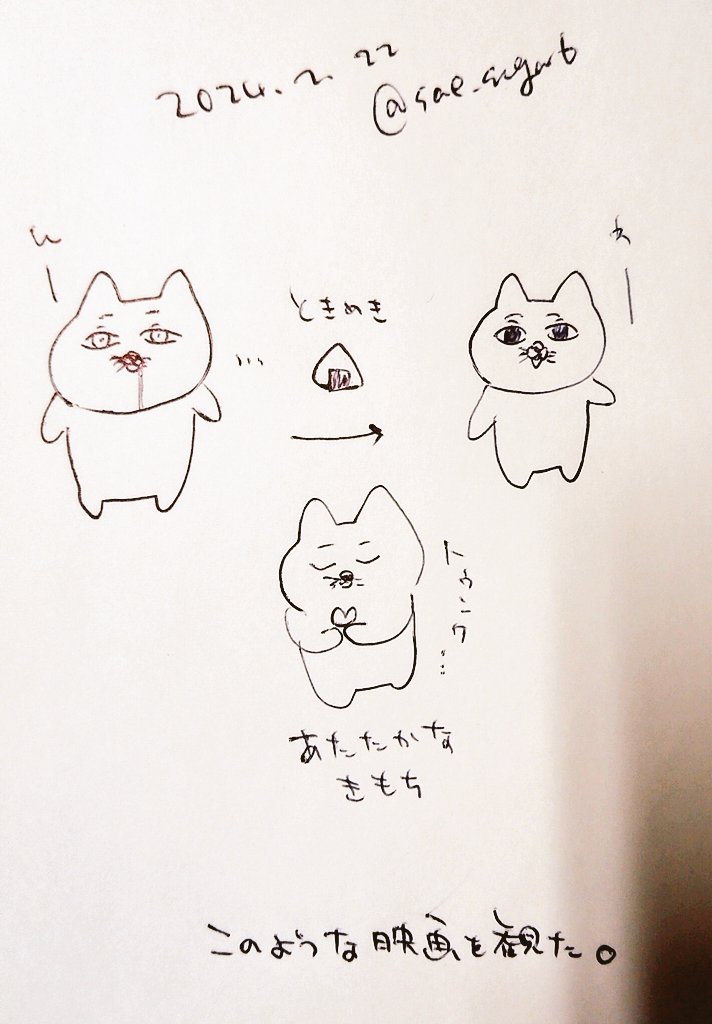 2024.2.22
@sae_sugar6
ん
ときめき
え
トゥンク…
あたたかな
きもち
このような映画を観た。